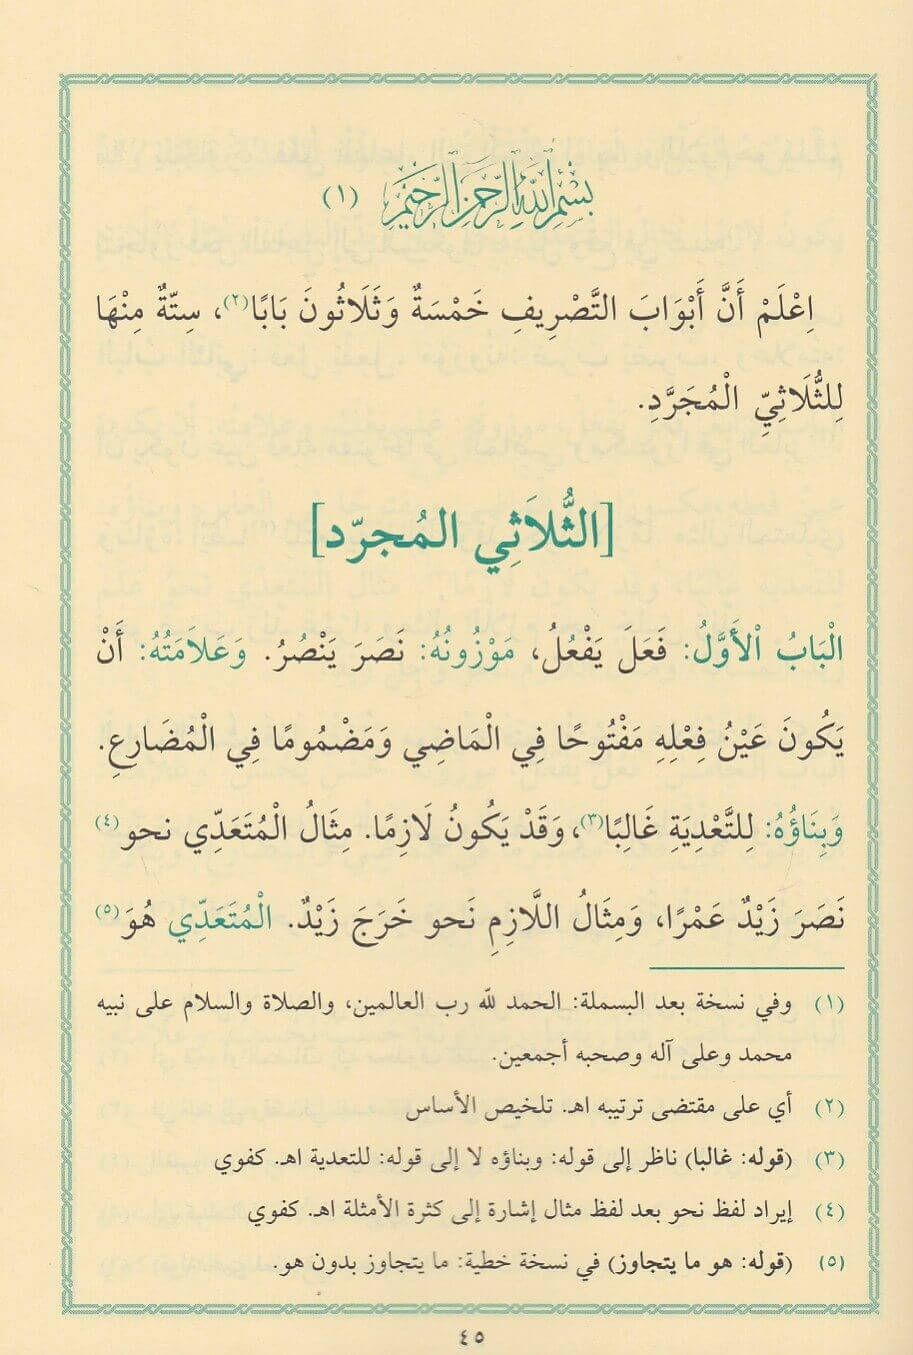 بِسْمِ اللَّهِ الرَّحْمَنِ الرَّحِيمِ (١)
اِعْلَمْ أَنَّ أَبْوَابَ التَّصْرِيفِ خَمْسَةٌ وَثَلَاثُونَ بَابًا(٢)، سِتَّةٌ مِنْهَا
لِلثُّلَاثِيِّ الْمُجَرَّدِ.
[الثُّلاَثِي المُجرّد]
الْبَابُ الْأَوَّلُ: فَعَلَ يَفْعُلُ، مَوْزُونُهُ: نَصَرَ يَنْصُرُ. وَعَلَامَتُهُ: أَنْ
يَكُونَ عَيْنُ فِعْلِهِ مَفْتُوحًا فِي الْمَاضِي وَمَضْمُومًا فِي الْمُضَارِعِ.
وَبِنَاؤُهُ: لِلتَّعْدِيَةِ غَالِبًا(٣)، وَقَدْ يَكُونُ لَازِمًا. مِثَالُ الْمُتَعَدِّي نحو(٤)
نَصَرَ زَيْدٌ عَمْرًا، وَمِثَالُ اللَّازِمِ نَحو خَرَجَ زَيْدٌ. الْمُتَعَدِّي هُوَ(٥)
(١) وفي نسخة بعد البسملة: الحمد لله رب العالمين، والصلاة والسلام على نبيه
محمد وعلى آله وصحبه أجمعين.
(٢) أي على مقتضى ترتيبه اهـ. تلخيص الأساس
(٣) (قوله: غالبا) ناظر إلى قوله: وبناؤه لا إلى قوله: للتعدية اهـ. كفوي
(٤) إيراد لفظ نحو بعد لفظ مثال إشارة إلى كثرة الأمثلة اهـ. كفوي
(٥) (قوله: هو ما يتجاوز) في نسخة خطية: ما يتجاوز بدون هو.
٤٥